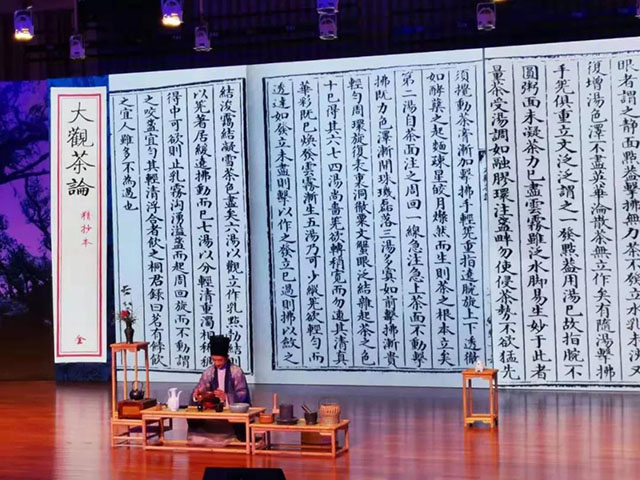 眼者謂之靜面點
復增湯色澤不盡英華淪散茶無立作矣有隨湯擊拂
手筅俱重立文泛泛謂之一發點蓋用湯已故指腕不
圓粥面未凝茶力已盡雲霧雖泛水脚易生妙于此者
量茶受湯調如融膠環注盞畔勿使侵茶勢不欲猛先
須攪動茶膏漸加擊拂手輕筅重指遶腕旋上下透徹
如酵蘖之起麵疎星皎月燦然而生則茶之根本立矣
第二湯自茶面注之周回一線急注急上茶面不動擊
拂既力色澤漸開珠璣磊落三湯多寡如前擊拂漸貴
輕勻周環旋復表裏洞徹粟文蟹眼泛結雜起茶之色
十已得其六七四湯尚嗇筅欲轉稍寬而勿速其清真
華彩既已煥發雲霧漸生五湯乃可少縱筅欲輕勻而
透達如發立未盡則擊以作之發立已過則拂以斂之
結浚靄結凝雪茶色盡矣六湯以觀立作乳點勃結則
以筅著居緩遶拂動而已七湯以分輕清重濁相稀稠
得中可欲則止乳霧洶湧溢盞而起周回旋而不動謂
之咬盞宜勻其輕清浮合者飲之桐君錄曰茗有餑飲
之宜人雖多不為過也
大觀茶論
精抄本
全